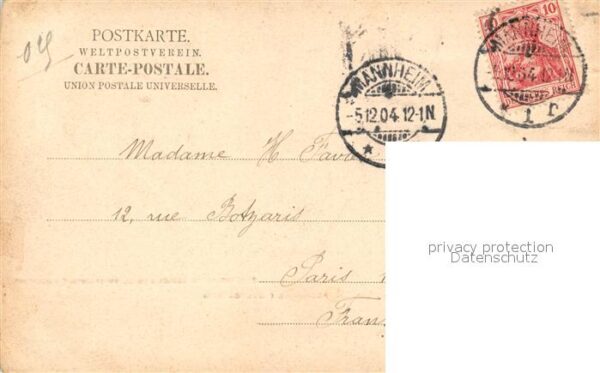 POSTKARTE.
WELTPOSTVEREIN.
CARTE-POSTALE.
UNION POSTALE UNIVERSELLE.
10
MANNHEIM
-5.12.04.12-1N
MANNHEIM
Madame H
12, rue Botzaris
Paris
privacy protection
Datenschutz